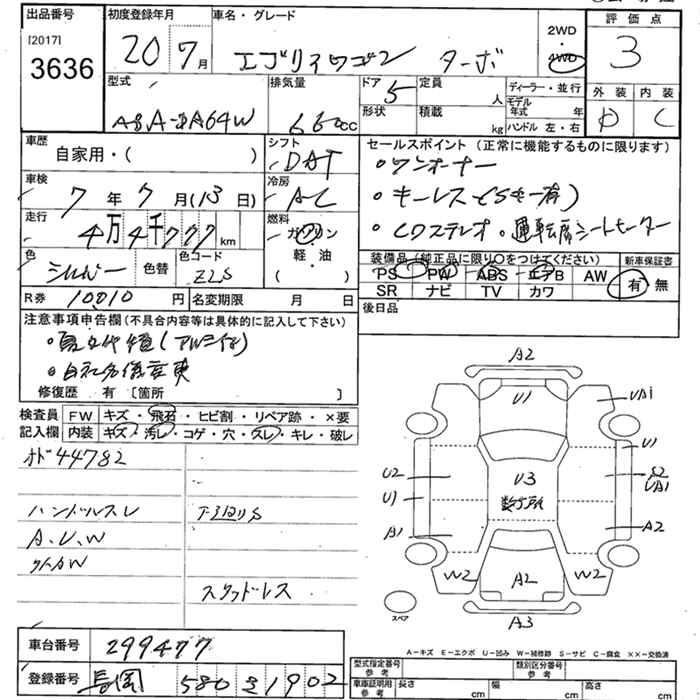 出品番号 初度登録年月 車名・グレード 評価点
[2017]
3636
20 7月 エブリィワゴン ターボ 2WD・4WD 3
型式 排気量 ドア 5 定員 人 ディーラー・並行 外装 内装
660cc 形状 積載 kg モデル年式 年 D C
ハンドル 左・右
車歴 シフト セールスポイント (正常に機能するものに限ります)
自家用・( ) DAT ・ワンオーナー
車検 冷房
7年7月(13日) AC ・キーレス
走行 燃料
4万4千777km ガソリン ・CDステレオ・運転席シートヒーター
色 色替 色コード 軽・油 装備品(純正品に限り○をつけてください) 新車保証書
シルバー Z2S ( ) PS PW ABS エアB AW 有・無
R券 10010円 名変期限 月 日 SR ナビ TV カワ
注意事項申告欄(不具合内容等は具体的に記入して下さい) 後日品
修復歴 有 [箇所 ]
検査員 FW キズ・飛石・ヒビ割・リペア跡・×要
記入欄 内装 キズ・汚レ・コゲ・穴・スレ・キレ・破レ
オド44782
ハンドルスレ
スタッドレス
A2
U1 UA1
U1
U2 U3 S2
UA1
U1 数ヶ所
A1 A2
W2 A2 W2
スペア A3
A-キズ E-エクボ U-凹み W-補修跡 S-サビ C-腐食 ××-交換済
車台番号 299477 型式指定番号 参考 類別区分番号 参考
登録番号 長岡 580 1902 車庫証明用 参考 長さ cm 幅 cm 高さ cm